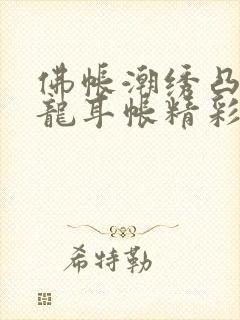 佛帐潮绣凸
龍耳帐精彩
希特勒